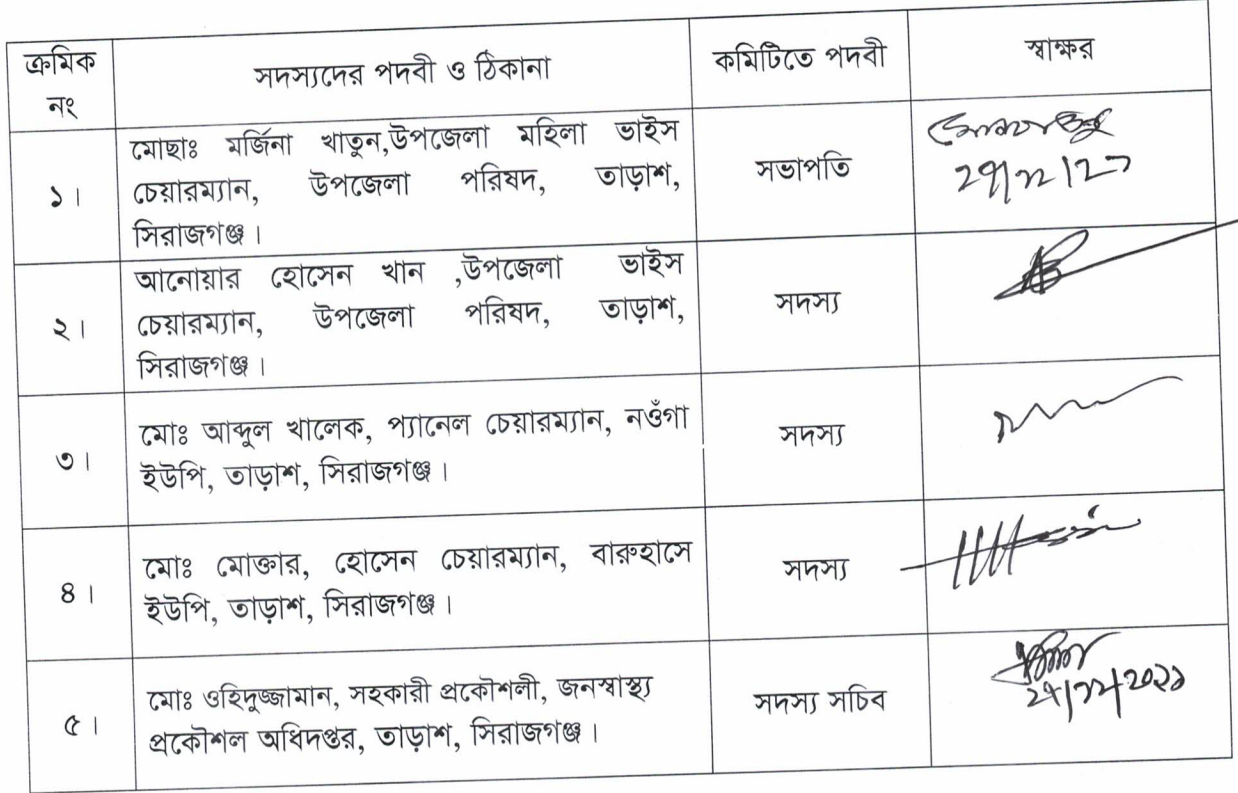 ক্রমিক
নং
সদস্যদের পদবী ও ঠিকানা
কমিটিতে পদবী
স্বাক্ষর
১।
মোছাঃ মর্জিনা খাতুন,উপজেলা মহিলা ভাইস
চেয়ারম্যান, উপজেলা পরিষদ, তাড়াশ,
সিরাজগঞ্জ।
সভাপতি
২।
আনোয়ার হোসেন খান ,উপজেলা ভাইস
চেয়ারম্যান, উপজেলা পরিষদ, তাড়াশ,
সিরাজগঞ্জ।
সদস্য
৩।
মোঃ আব্দুল খালেক, প্যানেল চেয়ারম্যান, নওঁগা
ইউপি, তাড়াশ, সিরাজগঞ্জ।
সদস্য
৪।
মোঃ মোক্তার, হোসেন চেয়ারম্যান, বারুহাসে
ইউপি, তাড়াশ, সিরাজগঞ্জ।
সদস্য
৫।
মোঃ ওহিদুজ্জামান, সহকারী প্রকৌশলী, জনস্বাস্থ্য
প্রকৌশল অধিদপ্তর, তাড়াশ, সিরাজগঞ্জ।
সদস্য সচিব